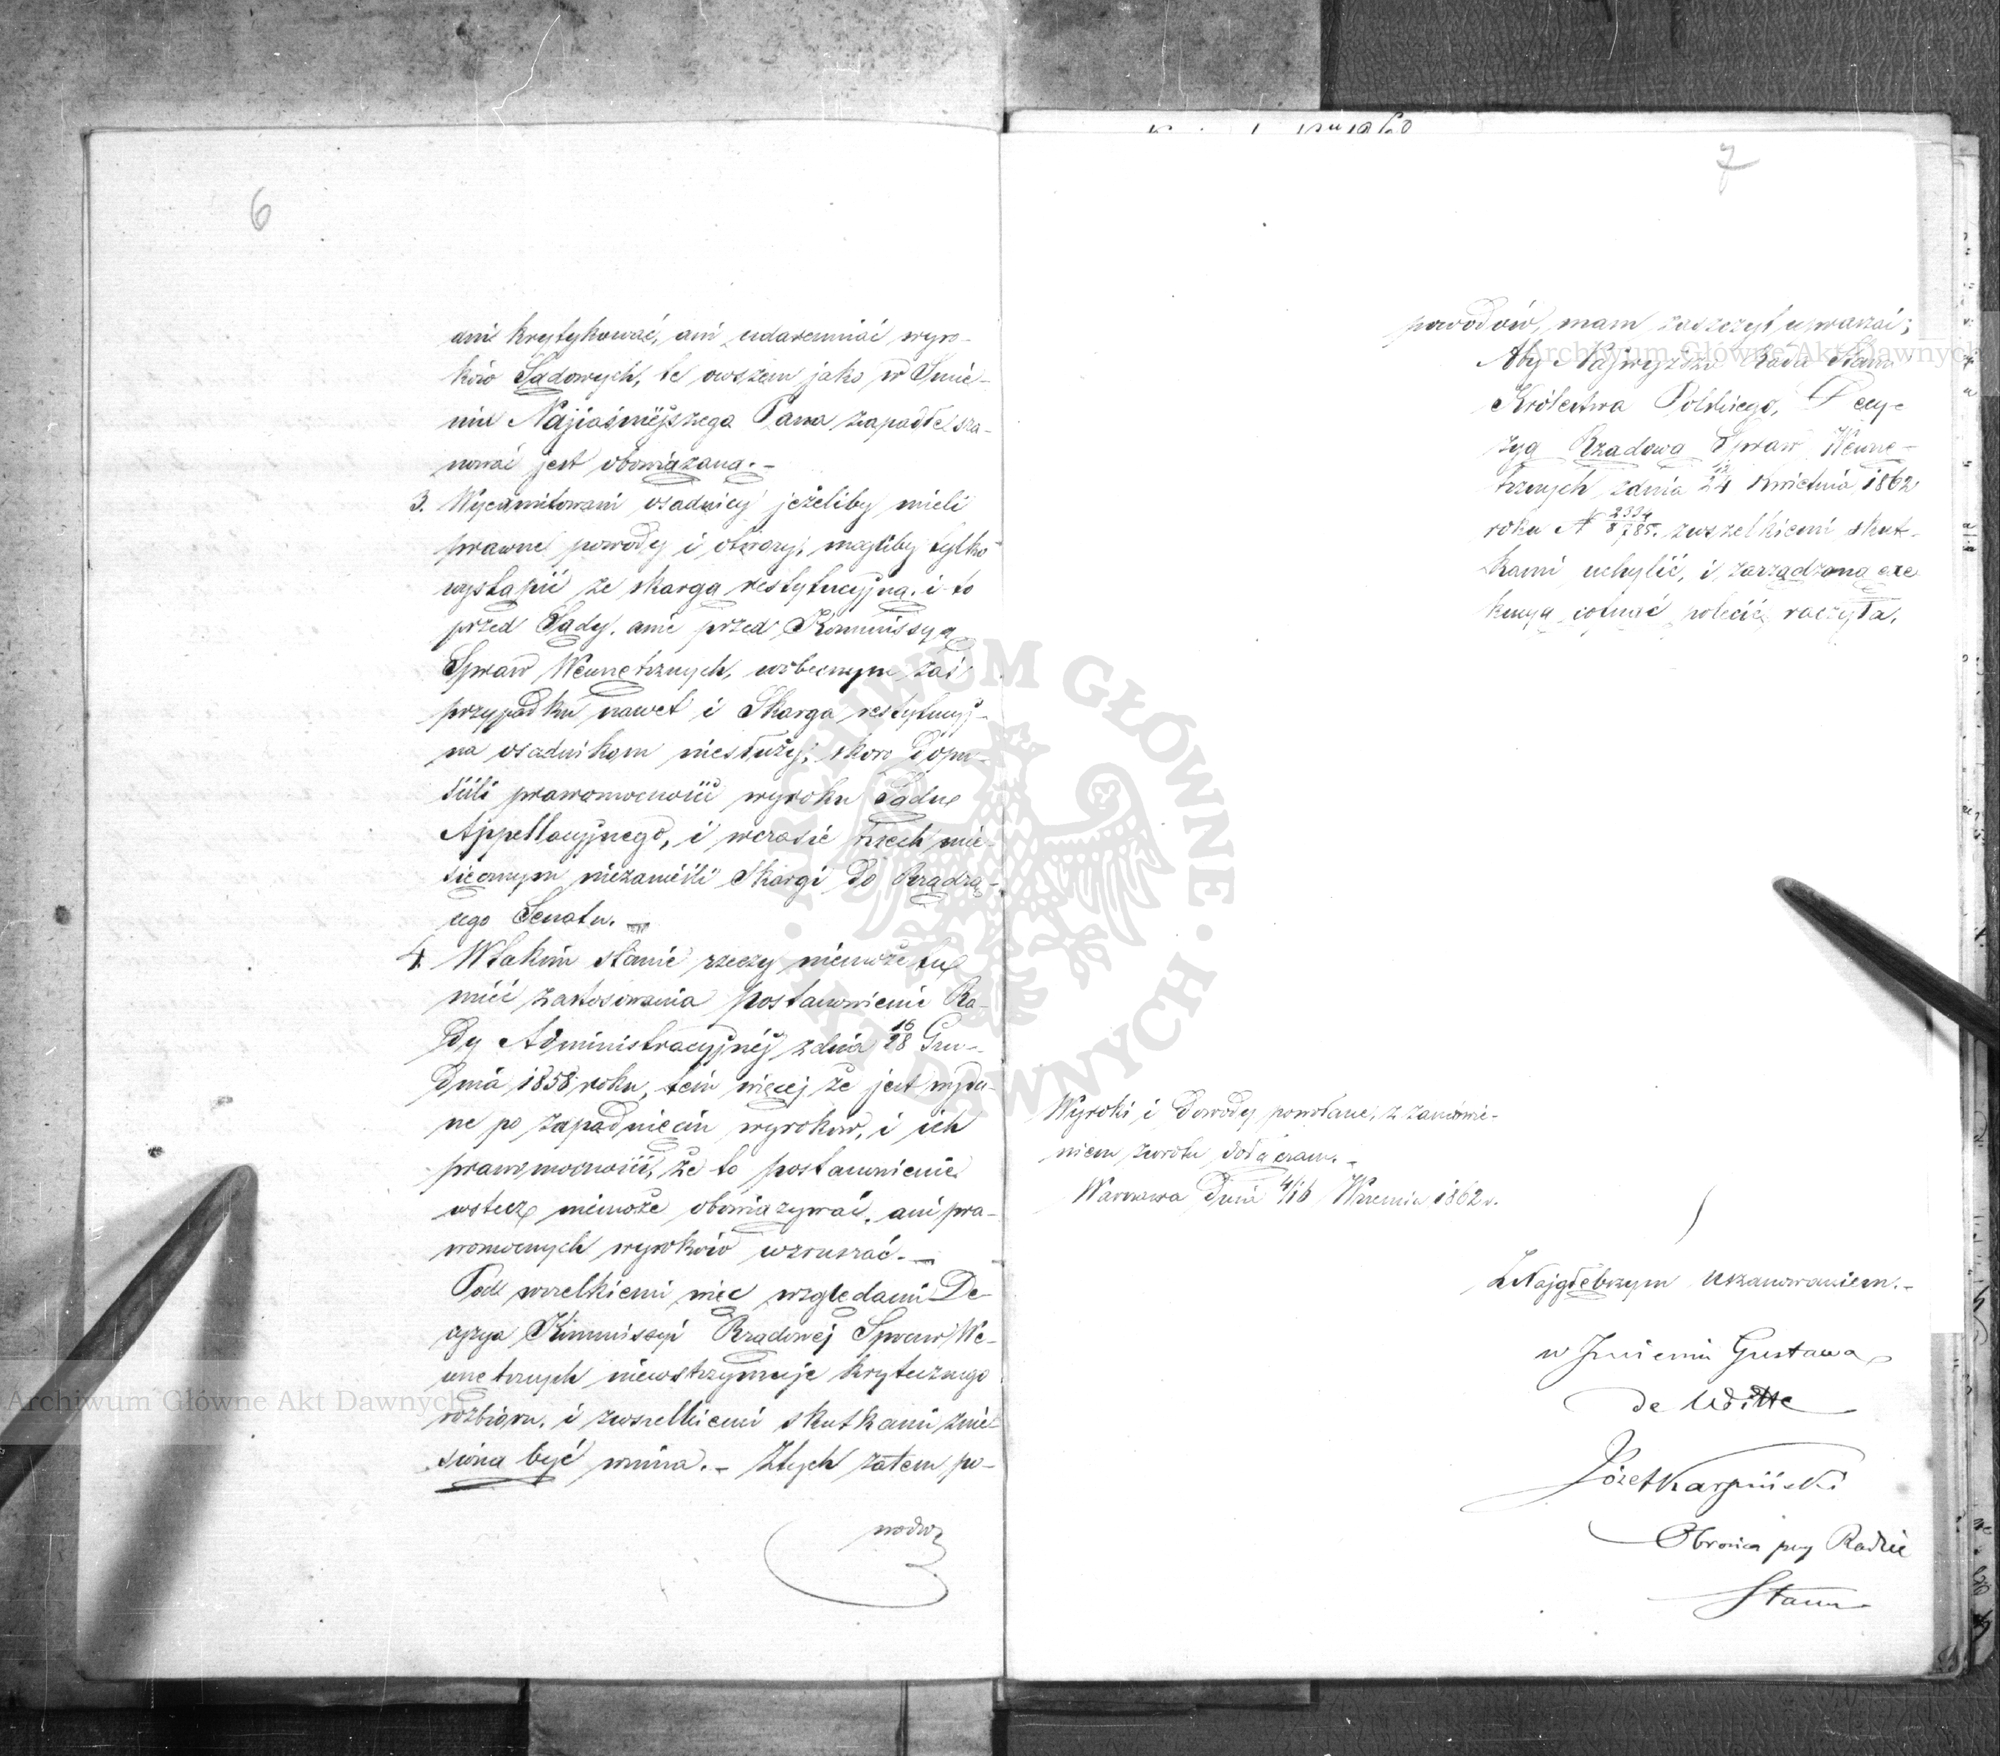 6
ani krytykować, ani udaremniać wyro-
ków Sądowych, te owszem jako w Imie-
niu Najjaśniejszego Pana zapadłe sza-
nować jest obowiązana.-
3. Wyexmitowani osadnicy jeżeliby mieli
prawne powody i obrazy, mogliby tylko
wystąpić ze skargą restytucyjną, i to
przed Sądy, anie przed Kommissyą
Spraw Wewnętrznych, wobecnym zaś
przypadku nawet i Skarga restytucyj-
na osadnikom niesłuży, skoro dopu-
ścili prawomocność wyroku Sądu
Appellacyjnego, i wczasie trzech mie-
sięcznym niezanieśli Skargi do Rządzą-
cego Senatu.
4. Wtakim stanie rzeczy niemoże tu
mieć zastosowania postanowienie Ra-
dy Administracyjnéj zdnia 16/28 Gru-
dnia 1858 roku, tem więcej że jest wyda-
ne po zapadnięciu wyroków, i ich
prawomocności, że to postanowienie
wstecz niemoże obowiązywać, ani pra-
womocnych wyroków wzruszać.-
Pod wszelkiemi więc względami De-
cyzya Kommissyi Rządowéj Spraw We-
wnętrznych niewstrzymuje krytycznego
rozbioru, i zwszelkiemi skutkami znie-
siona być winna.- Ztych zatem po-
wodów
7
powodów, mam zaszczyt upraszać;
Aby Najwyższa Rada Stanu
Królestwa Polskiego, Decy-
zyą Rządową Spraw Wewnę-
trznych zdnia 12/24 Kwietnia 1862
roku N zwszelkiemi skut-
kami uchylić, i zarządzoną exe
kucyą cofnąć polecić raczyła.
Wyroki i Dowody powołane, z zamówie-
niem zwrotu dołączam.-
Warszawa Dnia 4/16 Września 1862 r.
Z Najgłębszym uszanowaniem.-
w Imieniu Gustawa
de Witte
Józef Karpiński
Obrońca przy Radzie
Stanu
ARCHIWUM GŁÓWNE AKT DAWNYCH
Archiwum Główne Akt Dawnych
Archiwum Główne Akt Dawnych